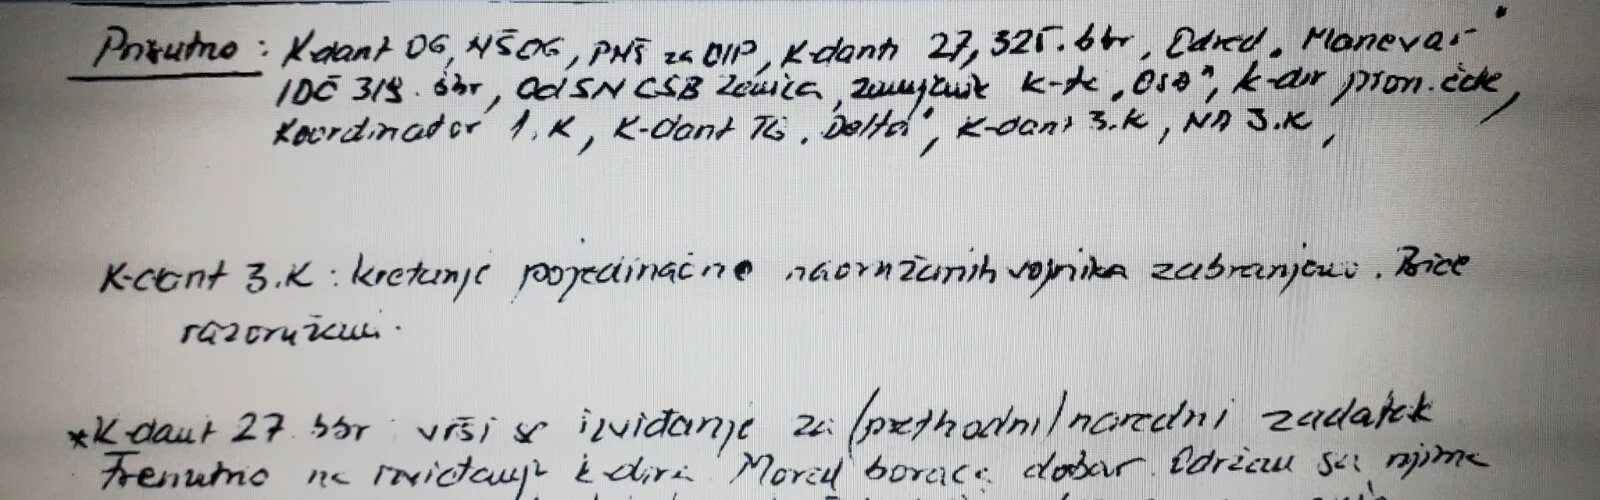 Prisutno: K-dant OG, NŠOG, PNŠ za OIP, K-danti 27, 325. bbr, Odred „Manevar"
IDČ 319. bbr, Od SN CSB Zenica, zamjenik k-te „OSA", k-dir
Koordinator 1.K, K-dant TG „Delta", K-dant 3.K, 3.K,
K-dant 3.K: kretanje pojedinačno naoružanih vojnika zabranjeno. Biće
razoružani.
*K-dant 27. bbr: vrši se izviđanje za /prethodni/ naredni zadatak
Trenutno na k-dira. Moral boraca dobar. Održan sa njima